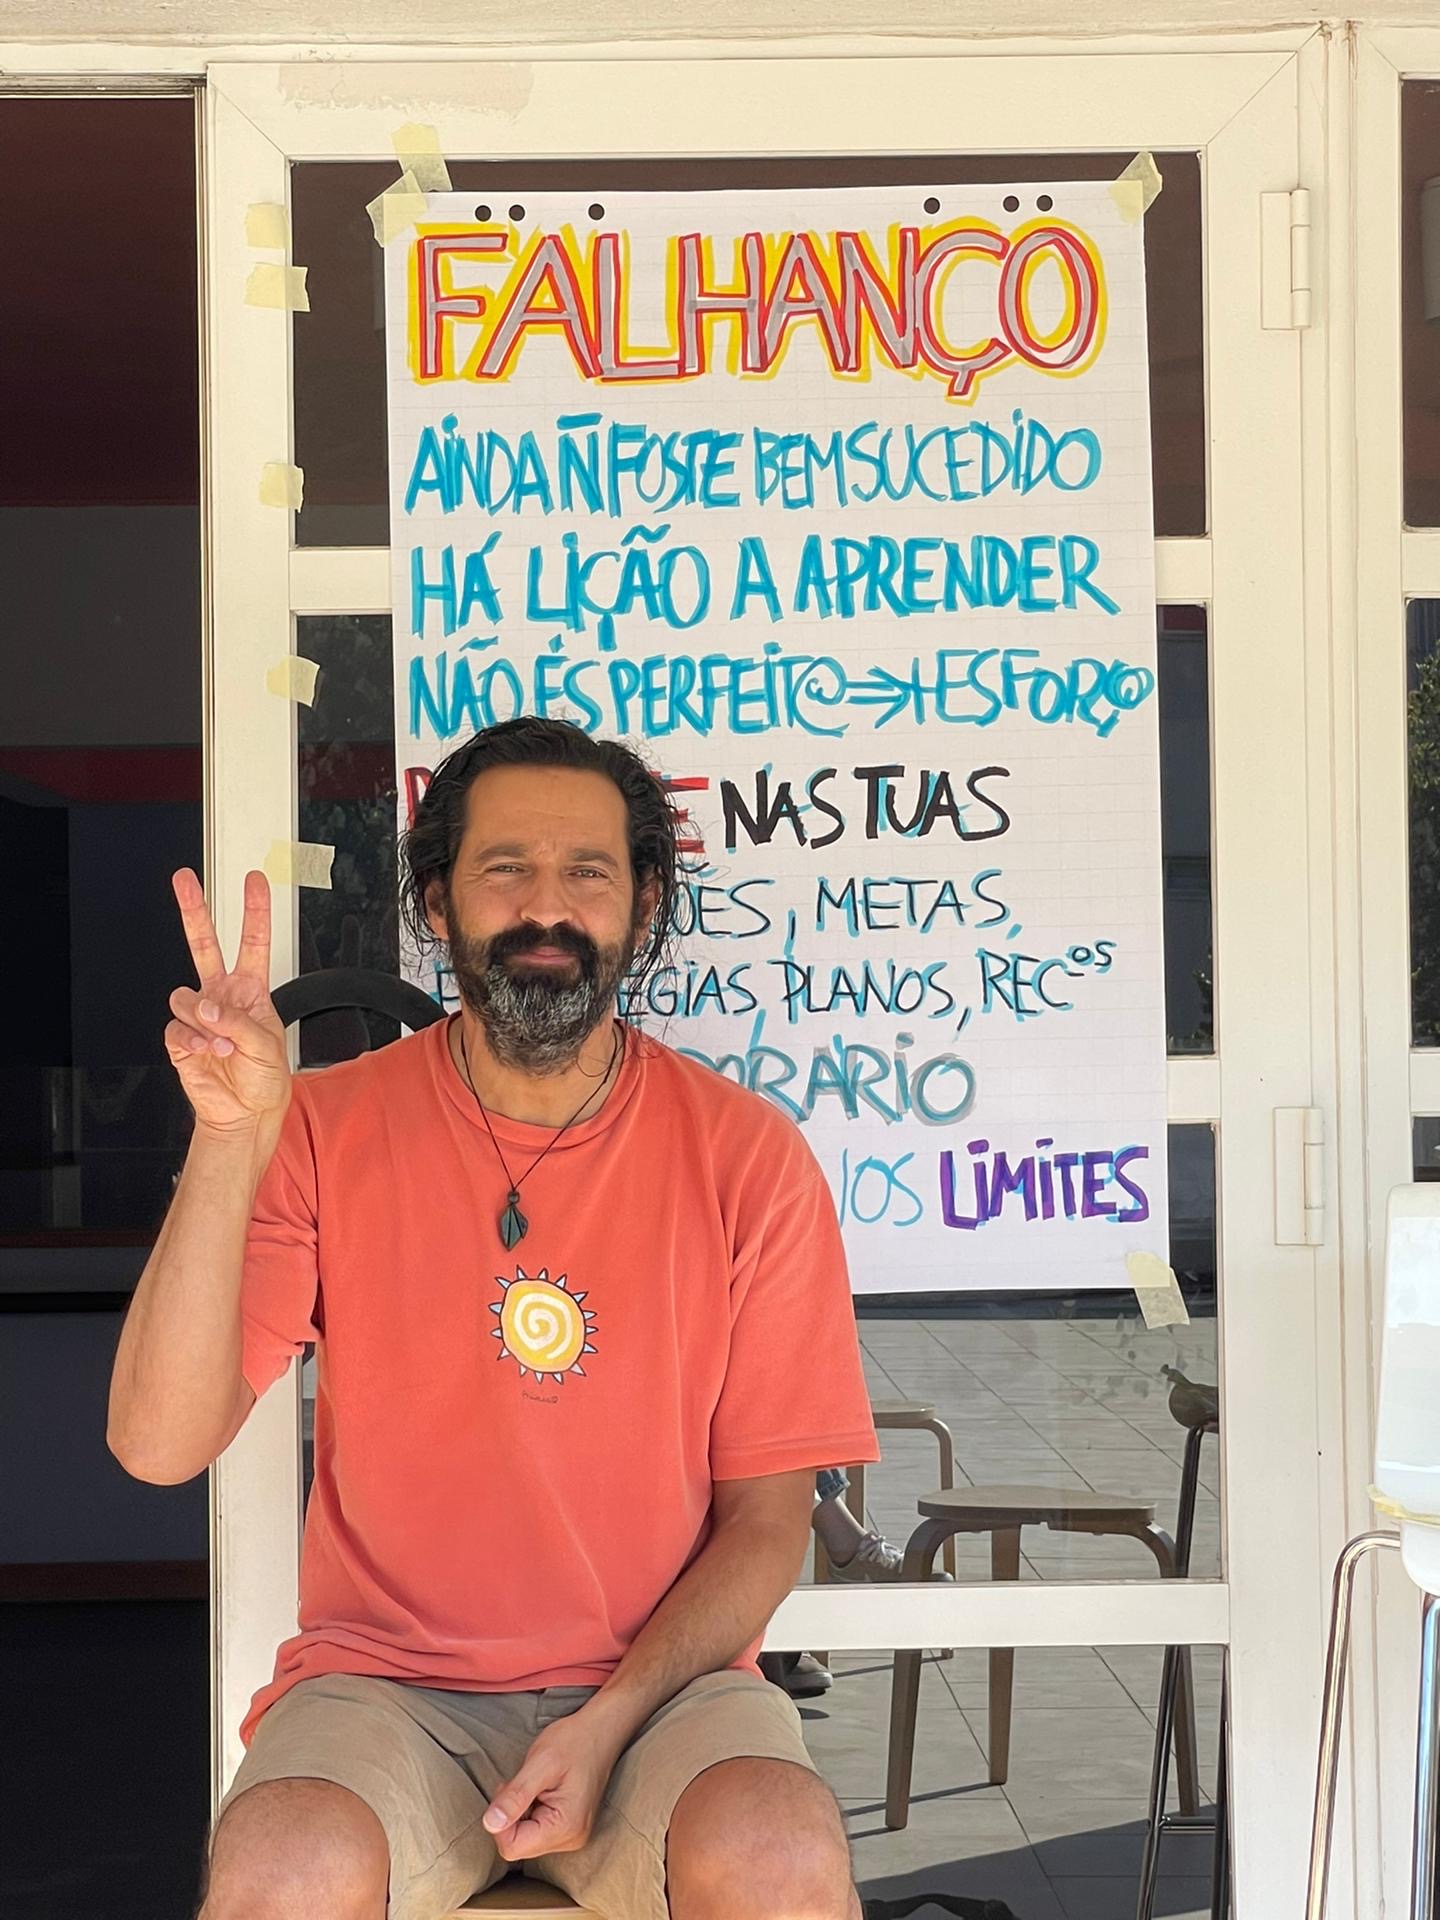 FALHANÇO
AINDA Ñ FOSTE BEM SUCEDIDO
HÁ LIÇÃO A APRENDER
NÃO ÉS PERFEIT@ → + ESFORÇ@
NAS TUAS
METAS,
PLANOS, REC^OS
LIMITES